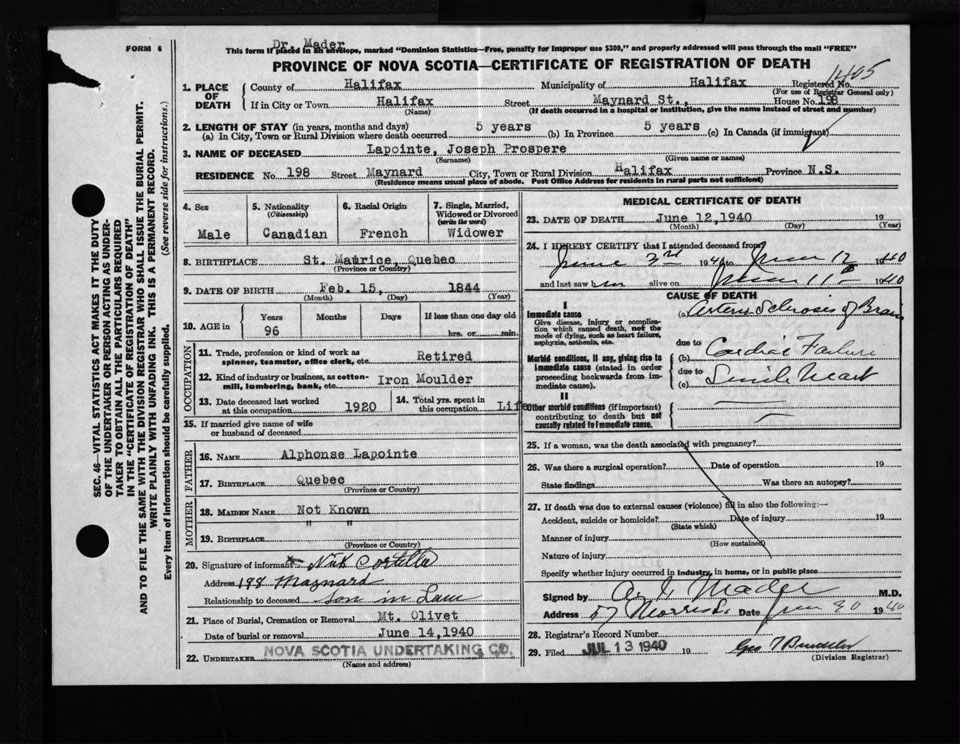 FORM 6
Dr. Mader
This form if placed in an envelope, marked "Dominion Statistics—Free, penalty for improper use $300," and properly addressed will pass through the mail "FREE"
PROVINCE OF NOVA SCOTIA—CERTIFICATE OF REGISTRATION OF DEATH
1405
1. PLACE OF DEATH
County of Halifax Municipality of Halifax Registered No.
(For use of Registrar General only)
If in City or Town Halifax Street Maynard St., House No. 198
(Name) (If death occurred in a hospital or institution, give the name instead of street and number)
2. LENGTH OF STAY (in years, months and days)
(a) In City, Town or Rural Division where death occurred 5 years (b) In Province 5 years (c) In Canada (if immigrant)
3. NAME OF DECEASED Lapointe, Joseph Prospere
(Surname) (Given name or names)
RESIDENCE No. 198 Street Maynard City, Town or Rural Division Halifax Province N.S.
(Residence means usual place of abode. Post Office Address for residents in rural parts not sufficient)
SEC. 46—VITAL STATISTICS ACT MAKES IT THE DUTY
OF THE UNDERTAKER OR PERSON ACTING AS UNDER-
TAKER TO OBTAIN ALL THE PARTICULARS REQUIRED
IN THE "CERTIFICATE OF REGISTRATION OF DEATH"
AND TO FILE THE SAME WITH THE DIVISION REGISTRAR WHO SHALL ISSUE THE BURIAL PERMIT.
WRITE PLAINLY WITH UNFADING INK. THIS IS A PERMANENT RECORD.
Every item of information should be carefully supplied. (See reverse side for instructions.)
4. Sex
Male
5. Nationality
(Citizenship)
Canadian
6. Racial Origin
French
7. Single, Married,
Widowed or Divorced
(write the word)
Widower
8. BIRTHPLACE St. Maurice, Quebec
(Province or Country)
9. DATE OF BIRTH Feb. 15, 1844
(Month) (Day) (Year)
10. AGE in
Years Months Days If less than one day old
96 hrs. or min.
OCCUPATION
11. Trade, profession or kind of work as
spinner, teamster, office clerk, etc. Retired
12. Kind of industry or business, as cotton-
mill, lumbering, bank, etc. Iron Moulder
13. Date deceased last worked
at this occupation 1920
14. Total yrs. spent in
this occupation Life
15. If married give name of wife
or husband of deceased
FATHER
16. NAME Alphonse Lapointe
17. BIRTHPLACE Quebec
(Province or Country)
MOTHER
18. MAIDEN NAME Not Known
19. BIRTHPLACE " "
(Province or Country)
20. Signature of informant x Nick
Address 198 Maynard
Relationship to deceased son in Law
21. Place of Burial, Cremation or Removal Mt. Olivet
Date of burial or removal June 14, 1940
22. UNDERTAKER NOVA SCOTIA UNDERTAKING CO.
(Name and address)
MEDICAL CERTIFICATE OF DEATH
23. DATE OF DEATH June 12, 1940 19
(Month) (Day) (Year)
24. I HEREBY CERTIFY that I attended deceased from
June 3rd 1940 to June 12 1940
and last saw him alive on June 11th 1940
CAUSE OF DEATH
I
Immediate cause
Give disease, injury or complica-
tion which caused death, not the
mode of dying, such as heart failure,
asphyxia, asthenia, etc.
(a) Arterio Sclerosis of Brain
due to
Morbid conditions, if any, giving rise to
immediate cause (stated in order
proceeding backwards from im-
mediate cause).
(b) Cardiac Failure
due to
(c) Senile Heart
II
Other morbid conditions (if important)
contributing to death but not
causally related to immediate cause.
25. If a woman, was the death associated with pregnancy?
26. Was there a surgical operation? Date of operation 19
State findings Was there an autopsy?
27. If death was due to external causes (violence) fill in also the following:—
Accident, suicide or homicide? Date of injury 19
(State which)
Manner of injury
(How sustained)
Nature of injury
Specify whether injury occurred in industry, in home, or in public place
Signed by Mader M.D.
Address 57 Morris St. Date June 30 1940
28. Registrar's Record Number
29. Filed JUL 13 1940 19 Geo
(Division Registrar)